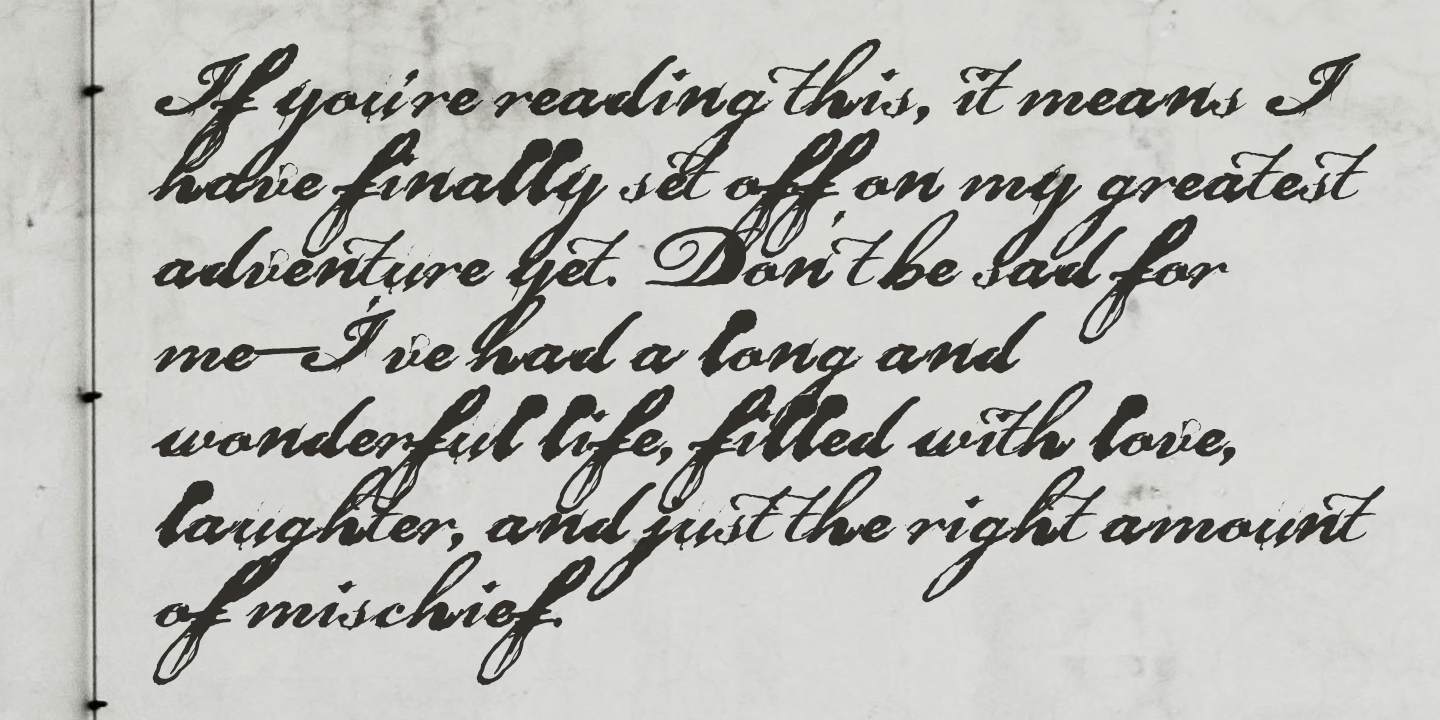 If you're reading this, it means I
have finally set off on my greatest
adventure yet. Don't be sad for
me—I've had a long and
wonderful life, filled with love,
laughter, and just the right amount
of mischief.